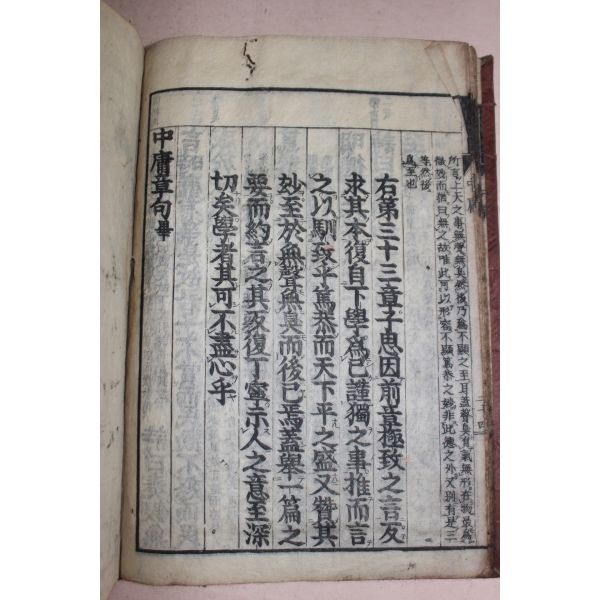 所言上天之事無聲無臭然後乃爲不顯之至耳蓋聲臭有氣無形在物最爲
微妙而猶曰無之故唯此可以形容不顯篤恭之妙非此德之外又別有是三
等然後
爲至也
右第三十三章子思因前章極致之言反
求其本復自下學爲己謹獨之事推而言
之以馴致乎篤恭而天下平之盛又贊其
妙至於無聲無臭而後已焉蓋舉一篇之
要而約言之其反復丁寧示人之意至深
切矣學者其可不盡心乎
中庸章句畢
中庸
二十四